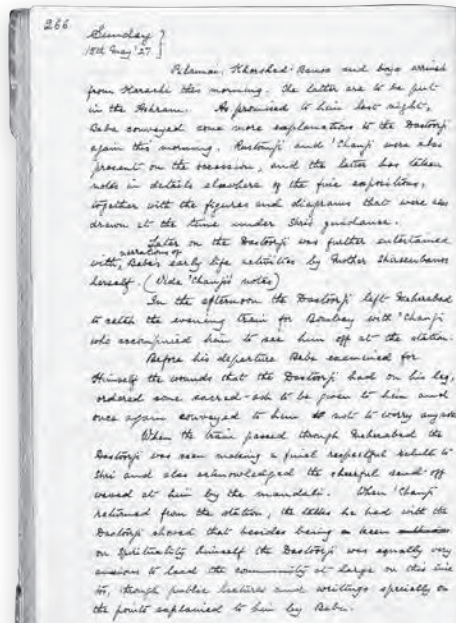 266
Sunday }
15th May '27 }
Pilamai, Khorshed-Banoo and boys arrived
from Karachi this morning. The latter are to be put
in the Ashram. As promised to him last night,
Baba conveyed some more explanations to the Dastoorji
again this morning. Rustomji and 'Chanji were also
present on the occasion, and the latter has taken
notes in details elsewhere of the fine expositions,
together with the figures and diagrams that were also
drawn at the time under Shri's guidance.
Later on the Dastoorji was further entertained
narrations of
with, Baba's early life activities by Mother Shireenbanoo
herself. (Vide 'Chanji's notes)
In the afternoon the Dastoorji left Meherabad
to catch the evening train for Bombay with 'Chanji
who accompanied him to see him off at the station.
Before his departure Baba examined for
Himself the wounds that the Dastoorji had on his leg,
ordered some sacred-ash to be given to him and
once again conveyed to him not to worry any
When the train passed through Meherabad the
Dastoorji was seen making a final respectful salute to
Shri and also acknowledged the cheerful send-off
waved at him by the mandali. When 'Chanji
returned from the station, the talks he had with the
Dastoorji showed that besides being keen
on Spirituality himself the Dastoorji was equally very
anxious to lead the community at large on this line
too, through public lectures and writings specially on
the points explained to him by Baba.